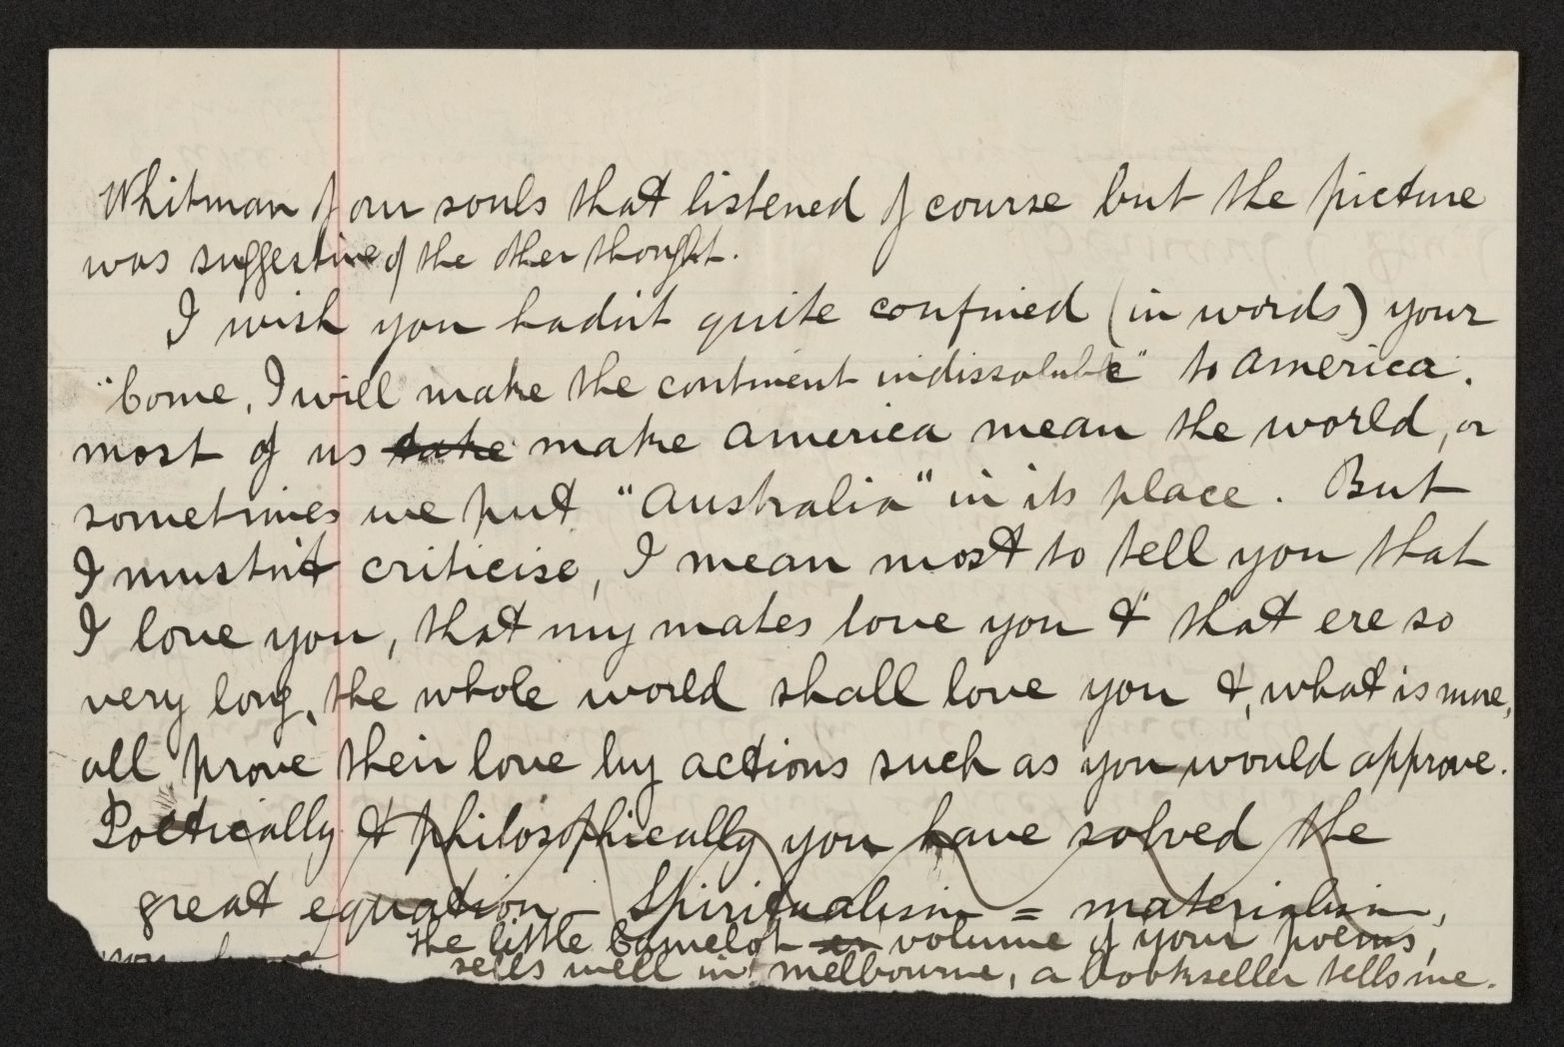 Whitman of our souls that listened of course but the picture
was suggestive of the other thought.
I wish you hadn't quite confined (in words) your
"Come, I will make the continent indissoluble" to America.
most of us take make America mean the world, or
sometimes we put "Australia" in its place. But
I mustn't criticise, I mean most to tell you that
I love you, that my mates love you & that ere so
very long, the whole world shall love you &, what is more,
all prove their love by actions such as you would approve.
Poetically & philosophically you have solved the
great equation — Spiritualism = materialism,
the little Camelot volume of your poems,
sells well in Melbourne, a bookseller tells me.